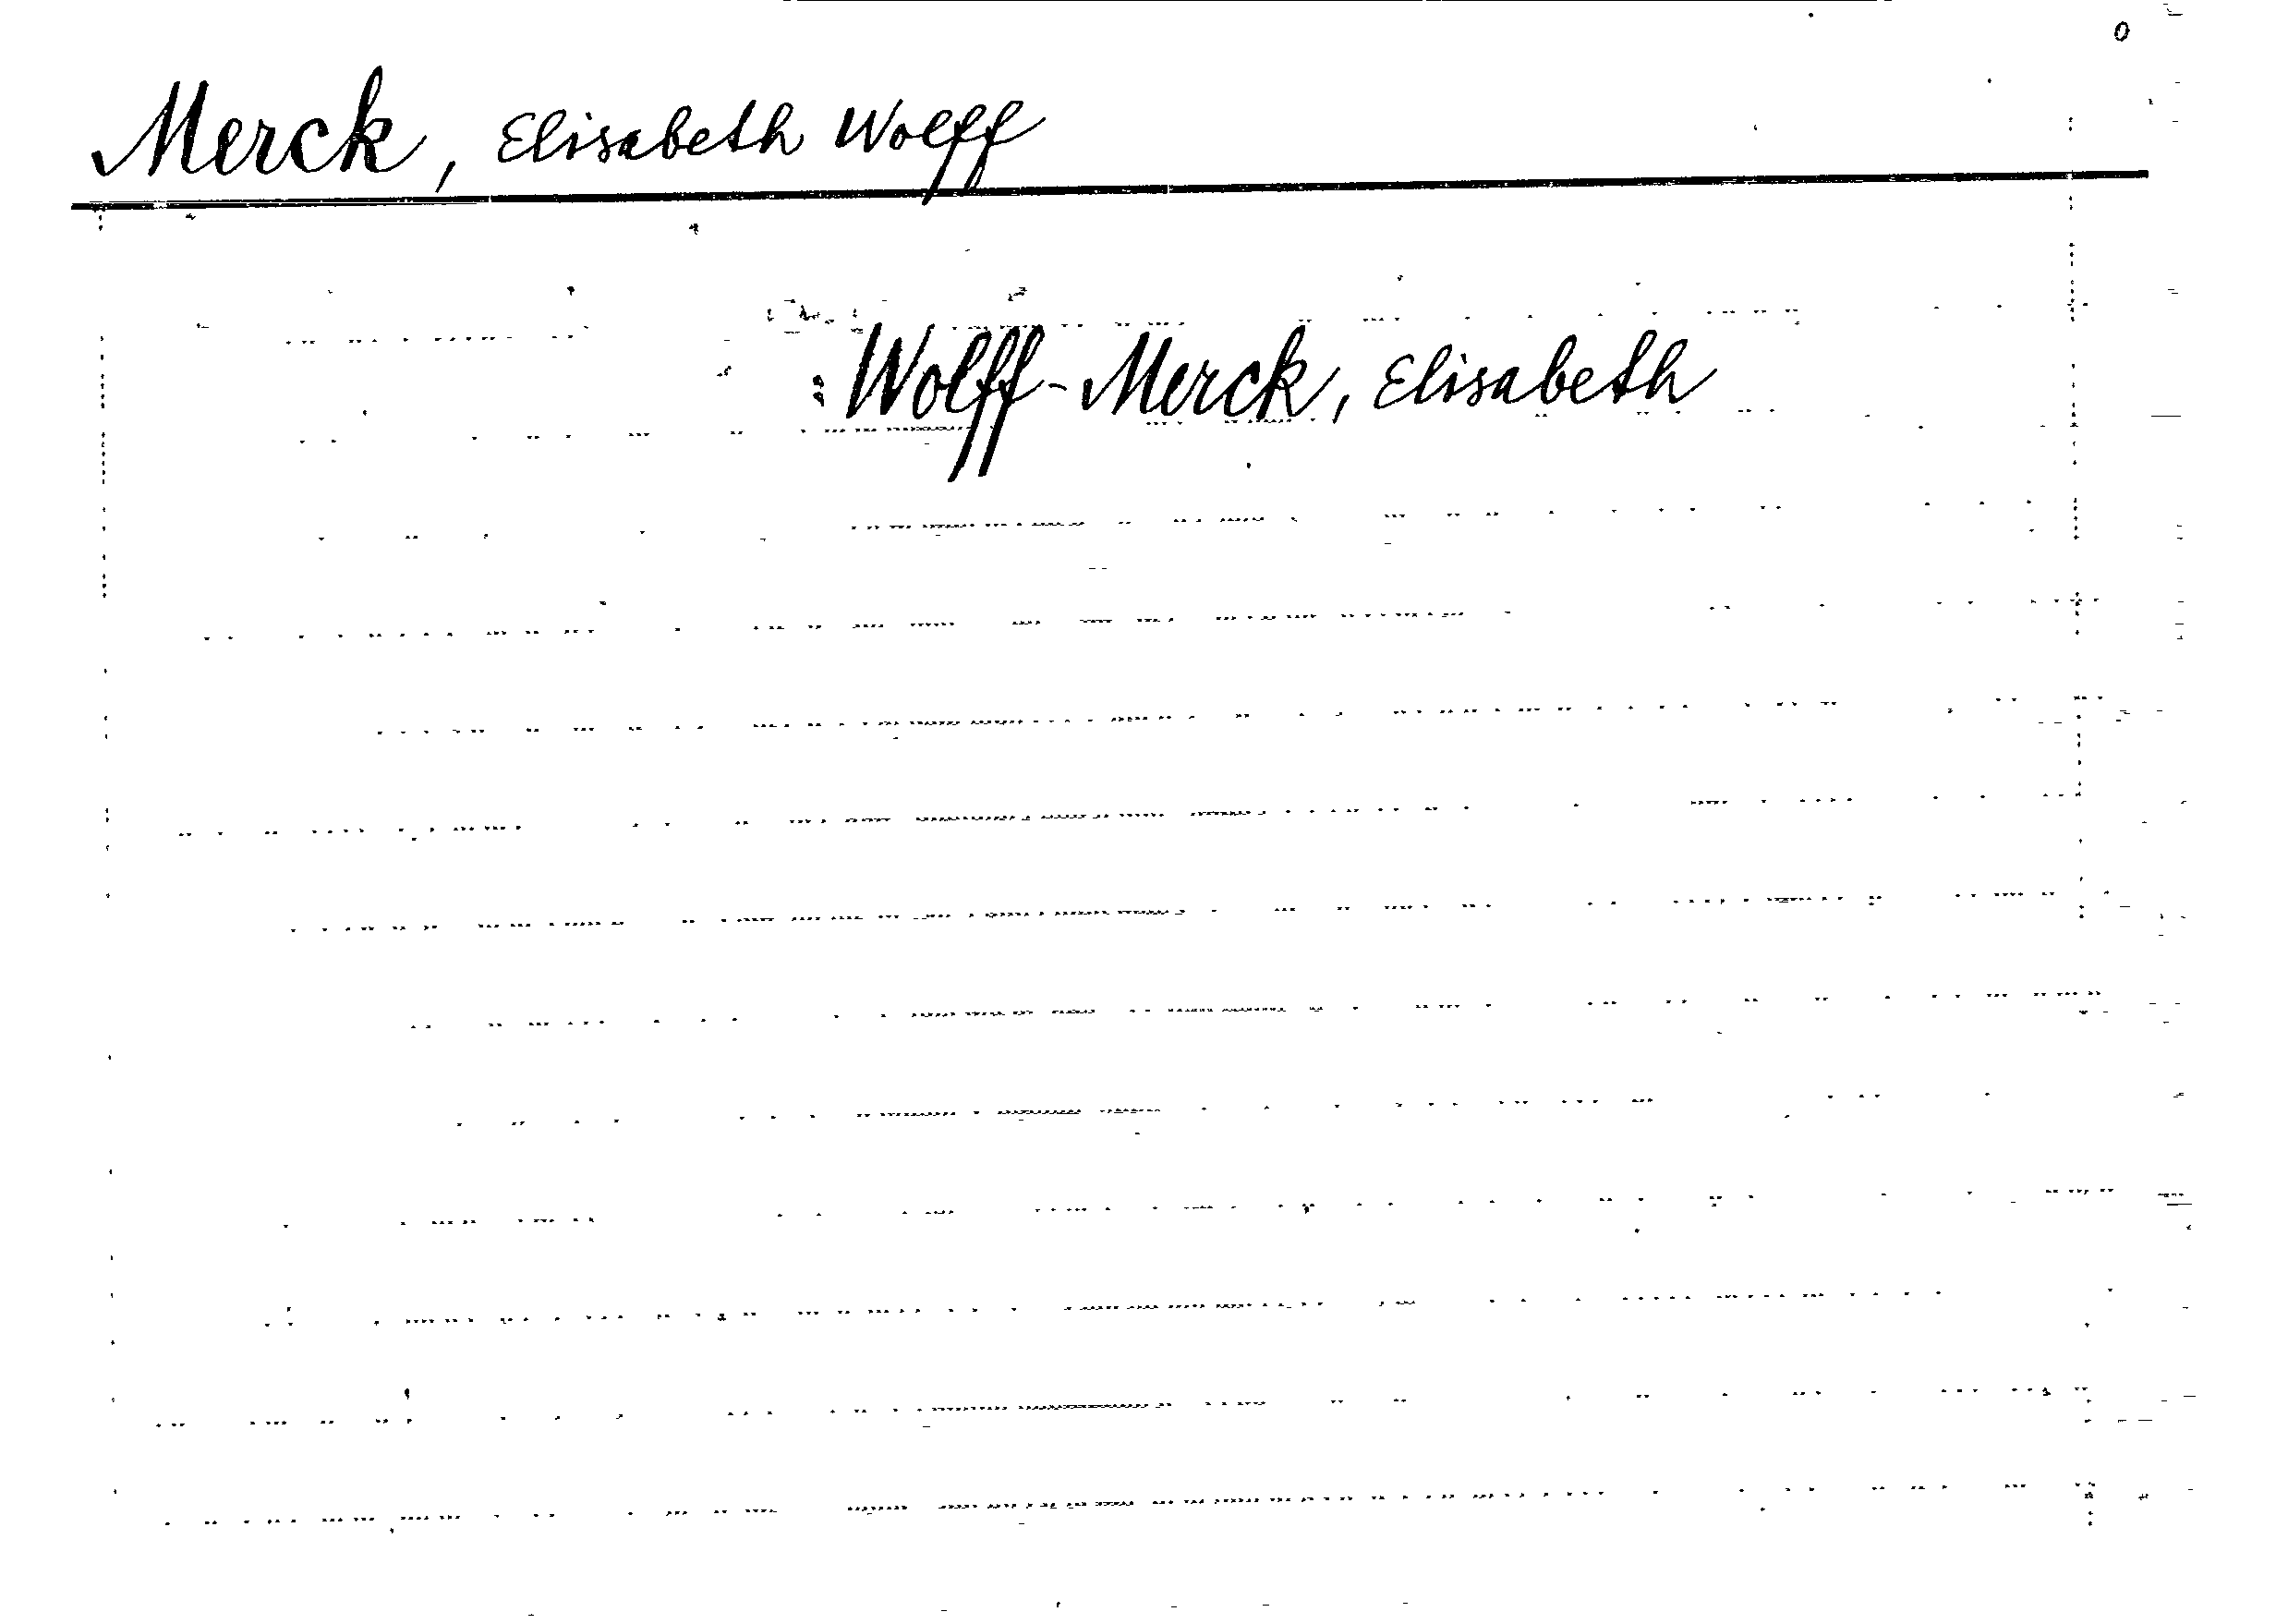 Merck, Elisabeth Wolff
: Wolff-Merck, Elisabeth